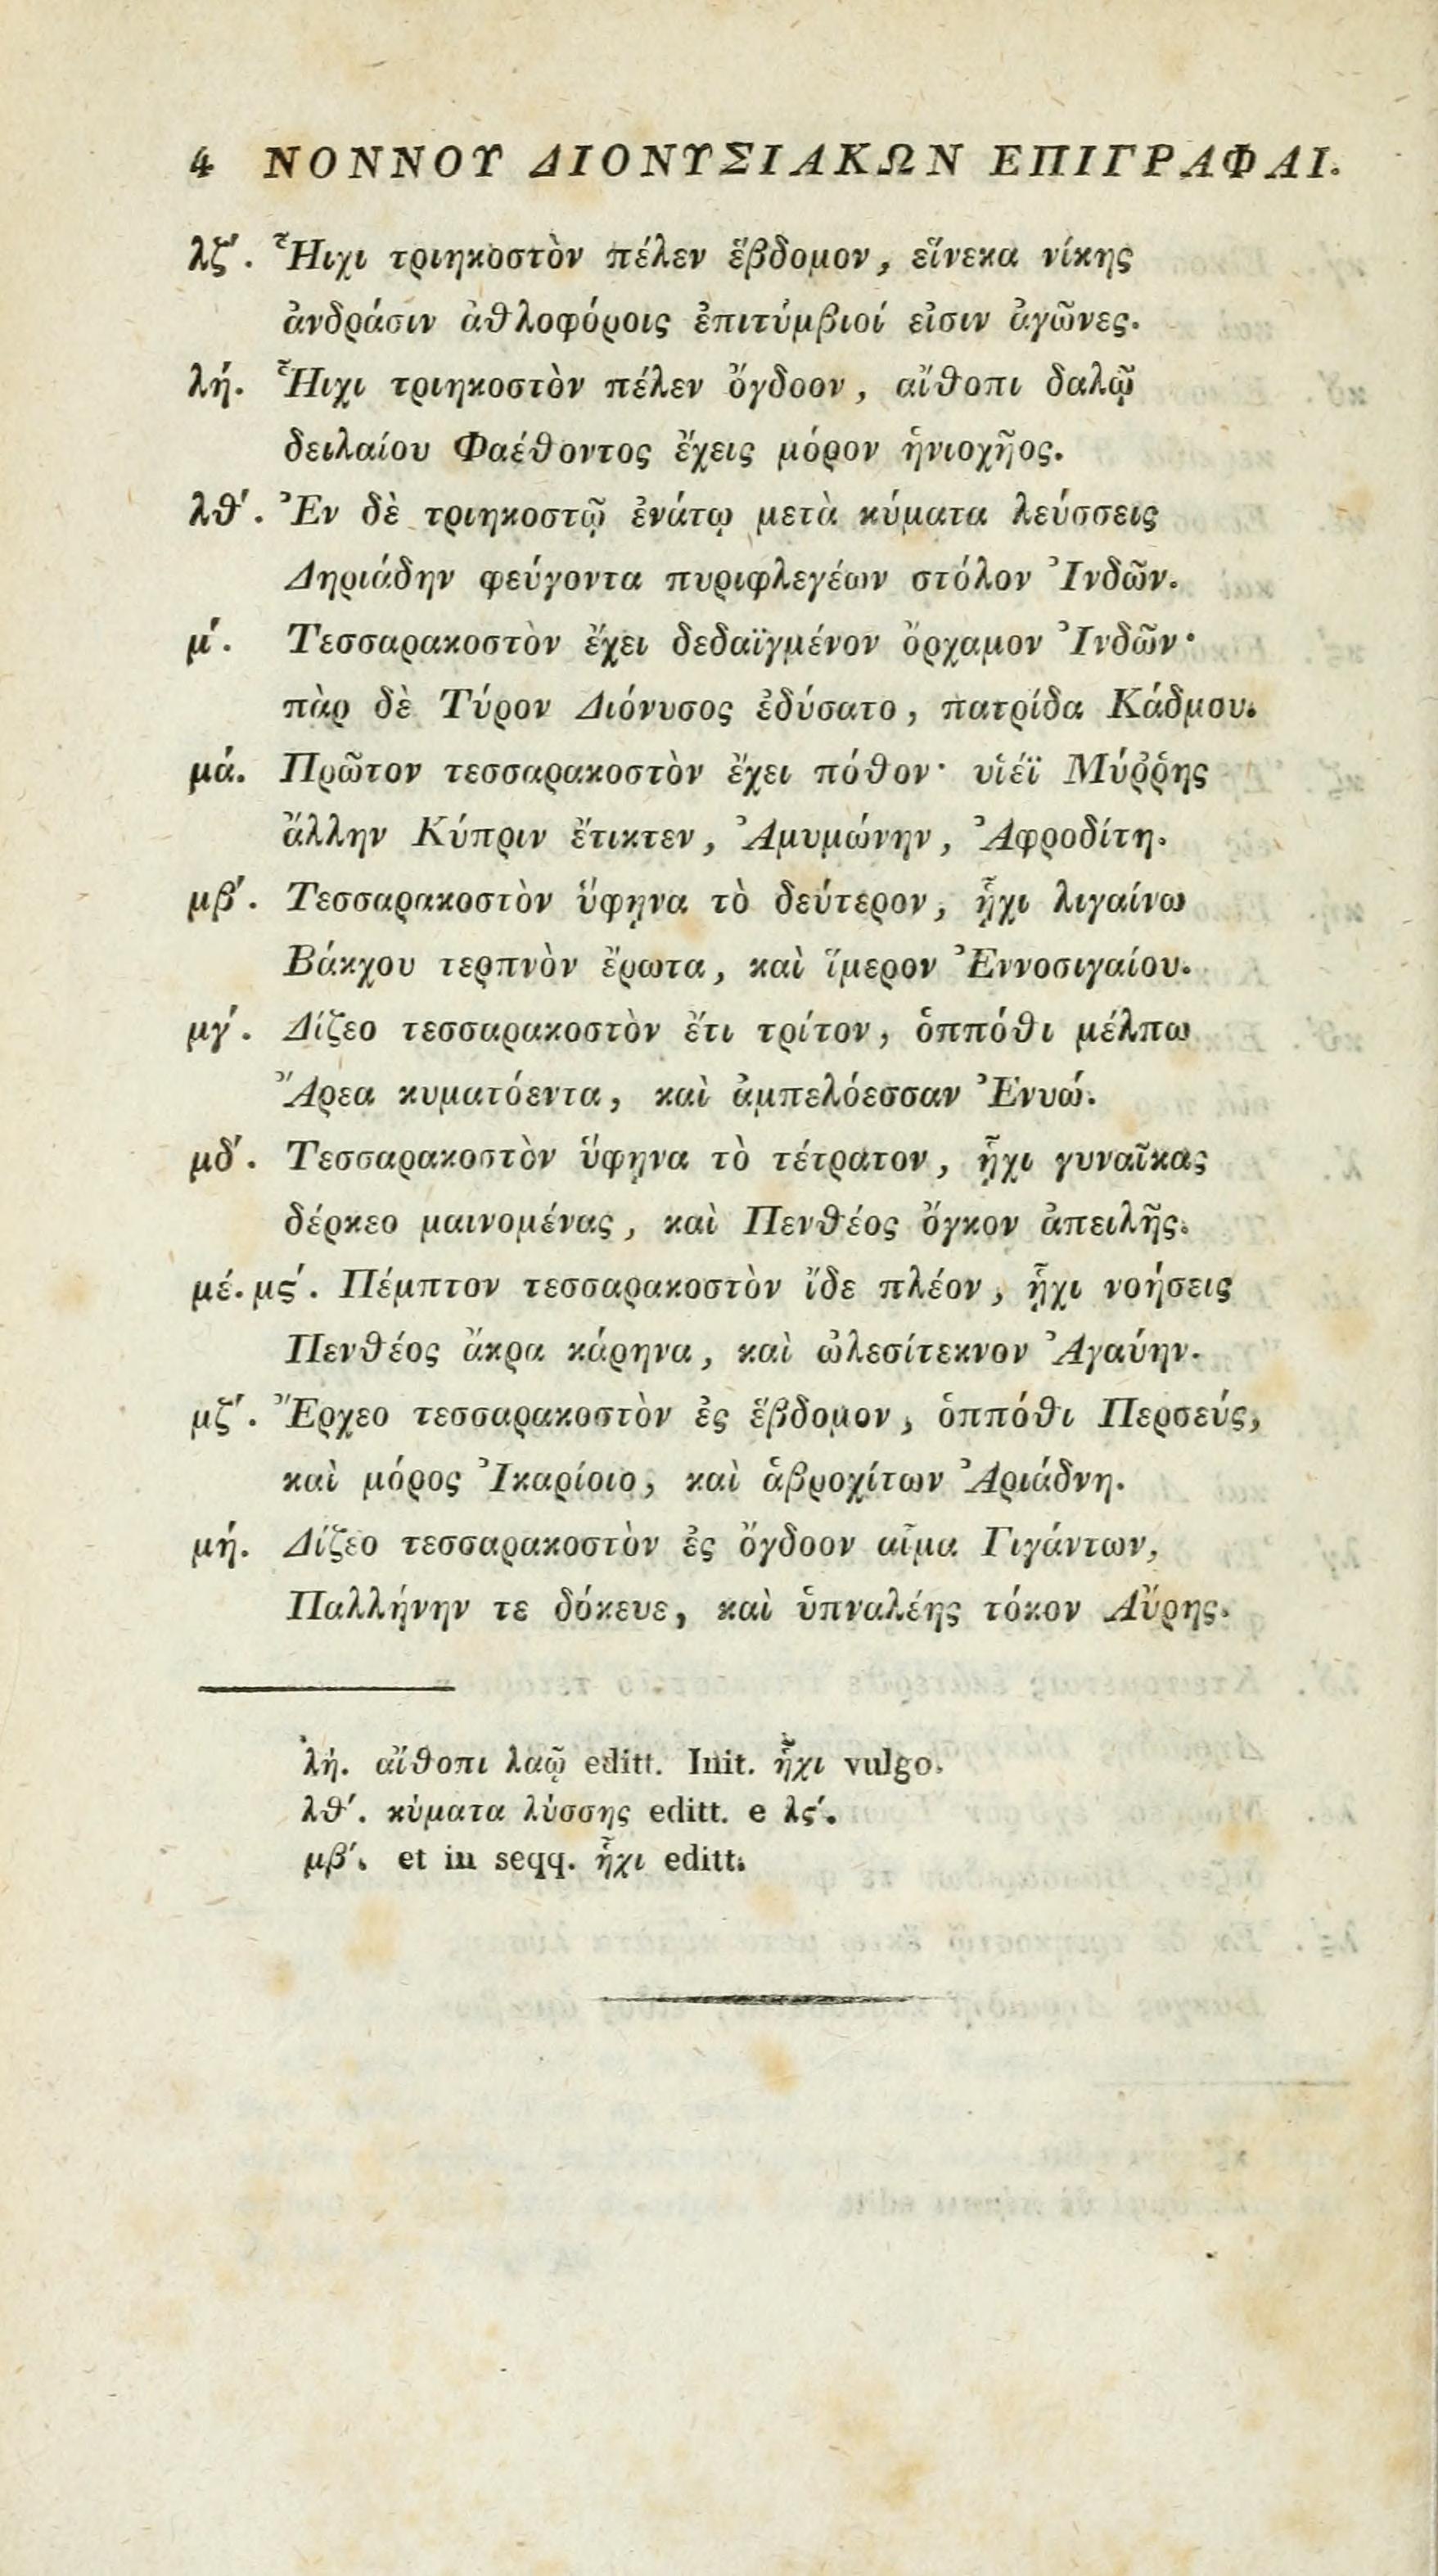 4 ΝΟΝΝΟΥ ΔΙΟΝΥΣΙΑΚΩΝ ΕΠΙΓΡΑΦΑΙ.
λζ΄. Ἧιχι τριηκοστὸν πέλεν ἕβδομον, εἵνεκα νίκης
ἀνδράσιν ἀθλοφόροις ἐπιτύμβιοί εἰσιν ἀγῶνες.
λή. Ἧιχι τριηκοστὸν πέλεν ὄγδοον, αἴθοπι δαλῷ
δειλαίου Φαέθοντος ἔχεις μόρον ἡνιοχῆος.
λθ΄. Ἐν δὲ τριηκοστῷ ἐνάτῳ μετὰ κύματα λεύσσεις
Δηριάδην φεύγοντα πυριφλεγέων στόλον Ἰνδῶν.
μ΄. Τεσσαρακοστὸν ἔχει δεδαϊγμένον ὄρχαμον Ἰνδῶν·
πὰρ δὲ Τύρον Διόνυσος ἐδύσατο, πατρίδα Κάδμου.
μά. Πρῶτον τεσσαρακοστὸν ἔχει πόθον· υἱέϊ Μύῤῥης
ἄλλην Κύπριν ἔτικτεν, Ἀμυμώνην, Ἀφροδίτη.
μβ΄. Τεσσαρακοστὸν ὕφηνα τὸ δεύτερον, ᾗχι λιγαίνω
Βάκχου τερπνὸν ἔρωτα, καὶ ἵμερον Ἐννοσιγαίου.
μγ΄. Δίζεο τεσσαρακοστὸν ἔτι τρίτον, ὁππόθι μέλπω
Ἄρεα κυματόεντα, καὶ ἀμπελόεσσαν Ἐνυώ.
μδ΄. Τεσσαρακοστὸν ὕφηνα τὸ τέτρατον, ᾗχι γυναῖκας
δέρκεο μαινομένας, καὶ Πενθέος ὄγκον ἀπειλῆς.
μέ. μς΄. Πέμπτον τεσσαρακοστὸν ἴδε πλέον, ᾗχι νοήσεις
Πενθέος ἄκρα κάρηνα, καὶ ὠλεσίτεκνον Ἀγαύην.
μζ΄. Ἔρχεο τεσσαρακοστὸν ἐς ἕβδομον, ὁππόθι Περσεύς,
καὶ μόρος Ἰκαρίοιο, καὶ ἁβροχίτων Ἀριάδνη.
μή. Δίζεο τεσσαρακοστὸν ἐς ὄγδοον αἷμα Γιγάντων,
Παλλήνην τε δόκευε, καὶ ὑπναλέης τόκον Αὔρης.
λή. αἴθοπι λαῷ editt. Init. ᾗχι vulgo.
λθ΄. κύματα λύσσης editt. e λς΄.
μβ΄. et in seqq. ἧχι editt.